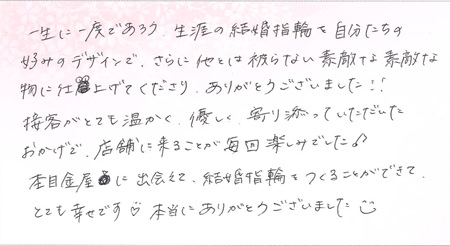 一生に一度であろう、生涯の結婚指輪を自分たちの
好みのデザインで、さらに他とは被らない素敵な素敵な
物に仕上げてくださり、ありがとうございました!!
接客がとても温かく、優しく、寄り添っていただいた
おかげで、店舗に来ることが毎回楽しみでした♪
杢目金屋に出会えて、結婚指輪をつくることができて、
とても幸せです♡ 本当にありがとうございました